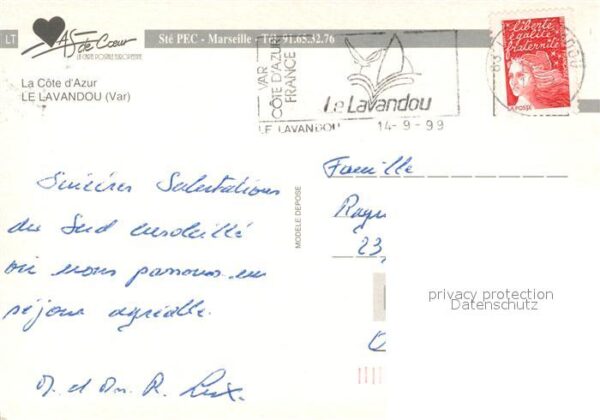 LT
AS de Cœur
LA CARTE POSTALE EUROPEENNE
Sté PEC - Marseille - Tél. 91.65.32.76
La Côte d'Azur
LE LAVANDOU (Var)
VAR
CÔTE D'AZUR
FRANCE
Le Lavandou
LE LAVANDOU 14-9-99
liberté
égalité
fraternité
LA POSTE
83
MODELE DEPOSE
Sincères Salutations
du Sud ensoleillé
où nous passons un
séjour agréable.
M. et Mme R.
Famille
23,
privacy protection
Datenschutz